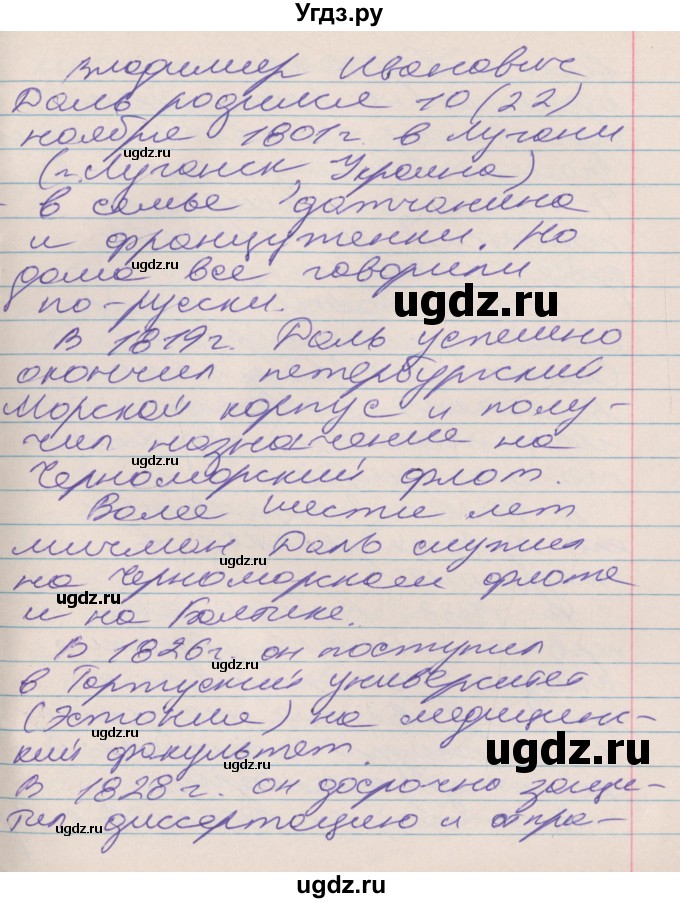 Угдз.ру
Владимир Иванович
Даль родился 10 (22)
ноября 1801 г. в Лугани
(г. Луганск, Украина)
в семье датчанина
и француженки. Но
дома все говорили
по-русски.
В 1819 г. Даль успешно
окончил петербургский
Морской корпус и полу-
чил назначение на
Черноморский флот.
Более шести лет
мичман Даль служил
на Черноморском флоте
и на Балтике.
В 1826 г. он поступил
в Тартуский университет
(Эстония) на медицинс-
кий факультет.
В 1828 г. он досрочно защи-
тил диссертацию и отпра-
ugdz.ru
ugdz.ru
ugdz.ru
ugdz.ru
ugdz.ru
ugdz.ru
ugdz.ru
ugdz.ru
ugdz.ru
ugdz.ru
ugdz.ru
ugdz.ru